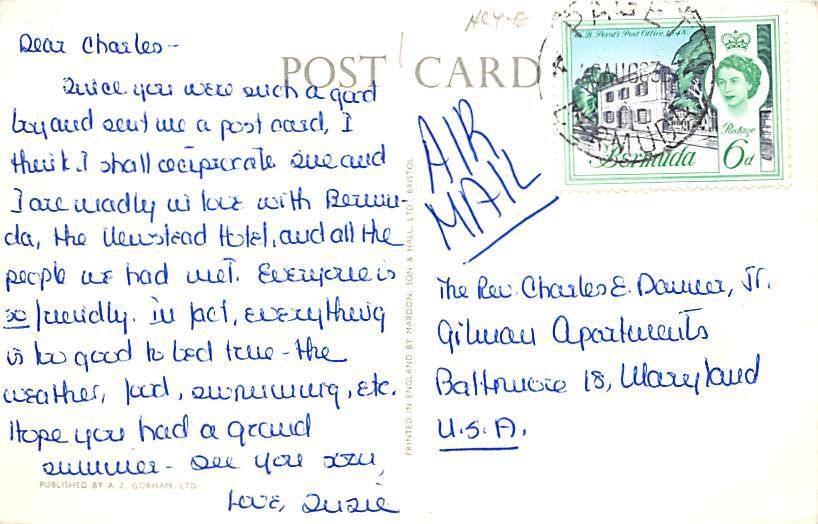 Dear Charles -
Since you were such a good
boy and sent me a post card, I
think I shall reciprocate. Sue and
I are madly in love with Bermu-
da, the Newstead Hotel, and all the
people we had met. Everyone is
so friendly. In fact, everything
is too good to be true - the
weather, food, swimming, etc.
Hope you had a grand
summer - See you soon,
Love, Susie
PUBLISHED BY A. J. GORHAM, LTD.
POST CARD
PRINTED IN ENGLAND BY MARDON, SON & HALL, LTD., BRISTOL
HCY-E
AIR
MAIL
PAGET
AUG 63
BERMUDA
W. B. Perot's Post Office, 1848.
Postage
Bermuda
6d
The Rev. Charles E. Danner, Jr.
Gilman Apartments
Baltimore 18, Maryland
U.S.A.